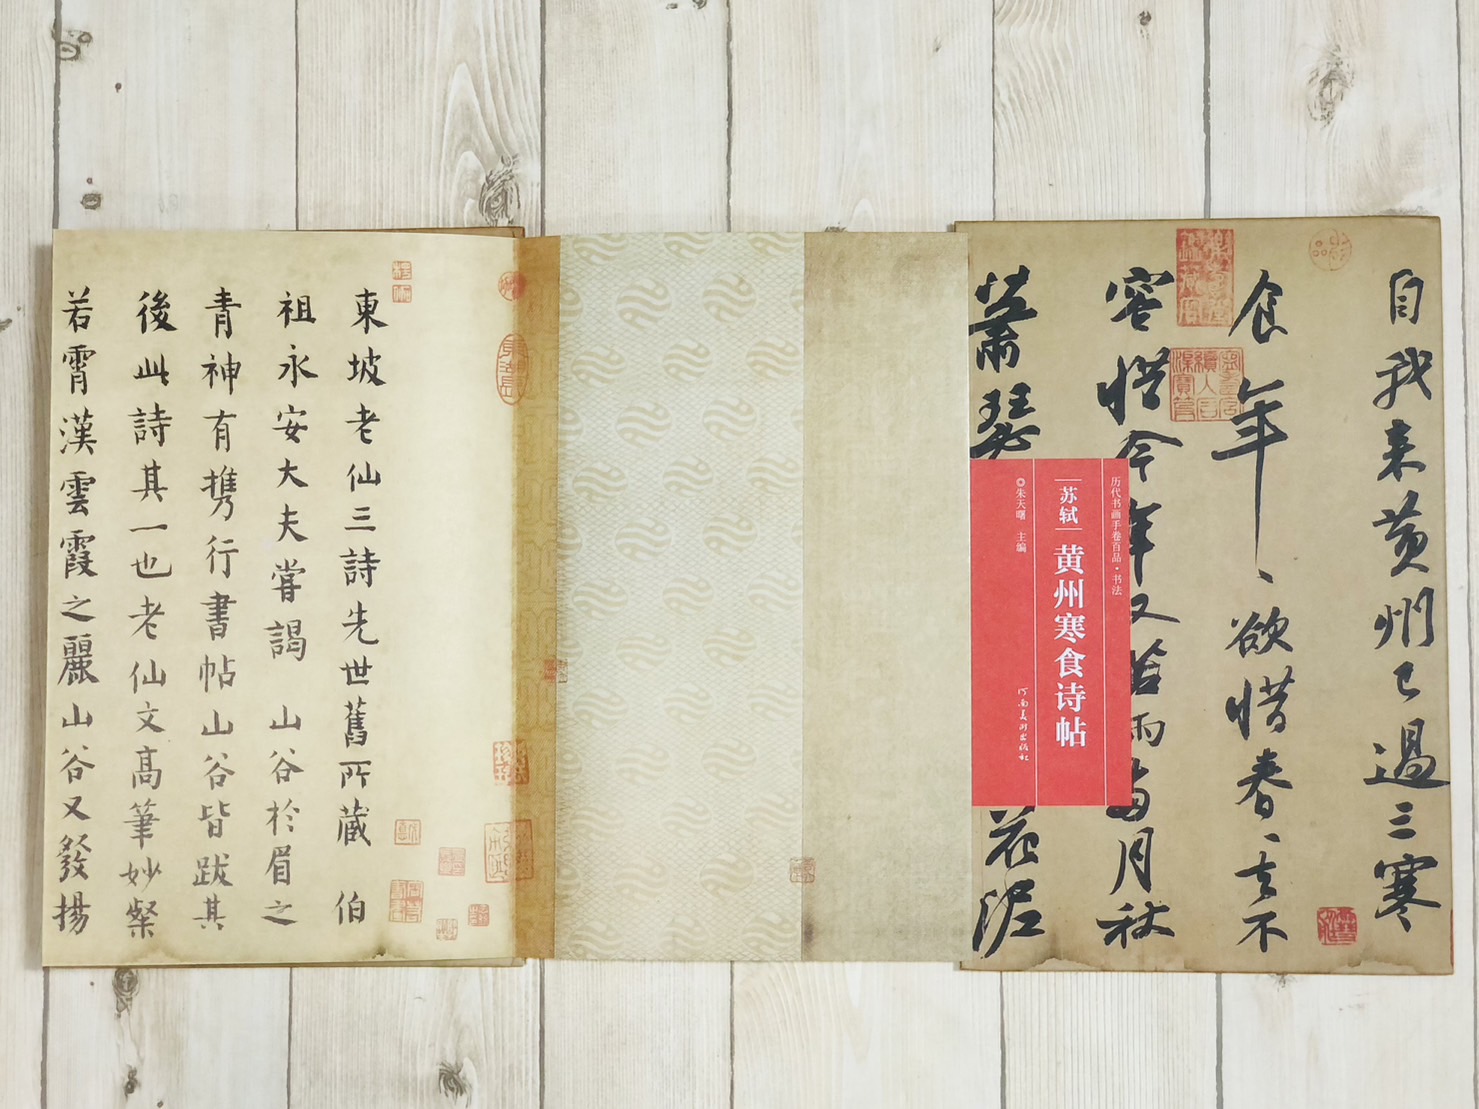 自我来黄州已過三寒
食年、欲惜春、去不
容惜今年又苦雨兩月秋
蕭瑟
花泥
历代书画手卷百品·书法
苏轼 黄州寒食诗帖
◎朱天曙 主编
河南美术出版社
東坡老仙三詩先世舊所藏 伯
祖永安大夫嘗謁 山谷於眉之
青神有携行書帖山谷皆跋其
後此詩其一也老仙文高筆妙粲
若霄漢雲霞之麗山谷又發揚